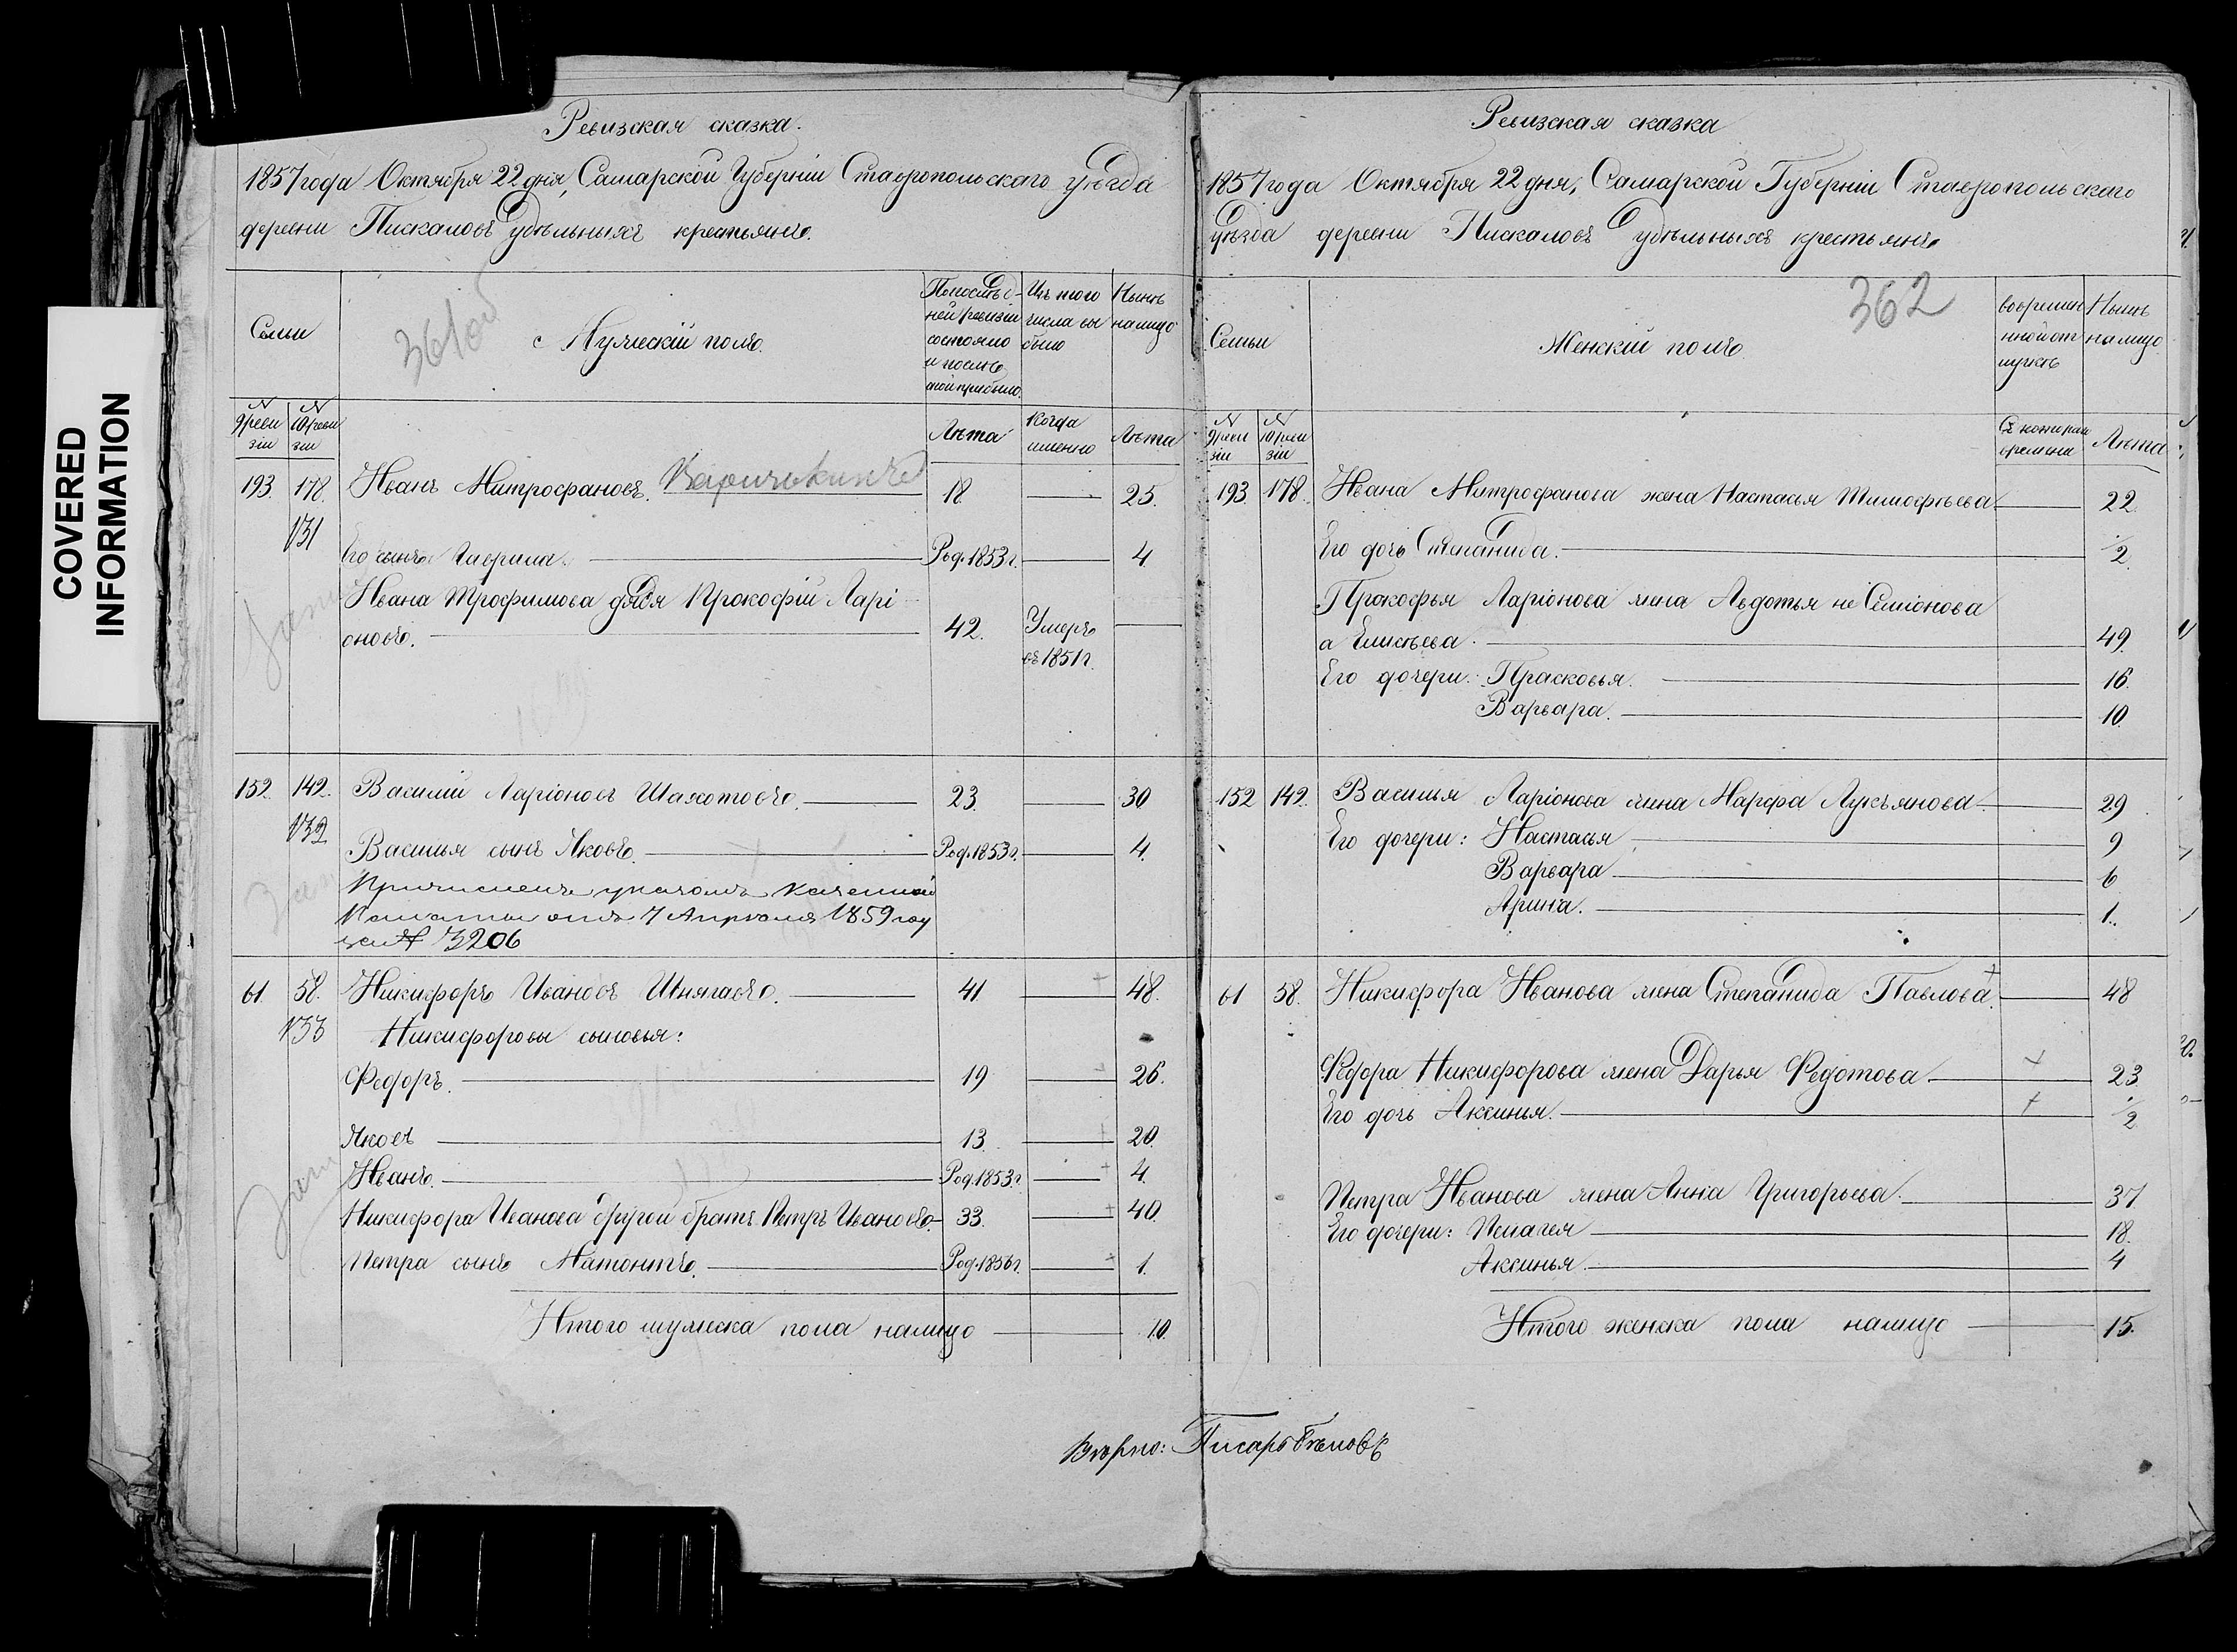 COVERED
INFORMATION
Ревизская сказка.
1857 года Октября 22 дня, Самарской Губерніи Ставропольскаго уѣзда
деревни Пискаловъ удѣльныхъ крестьянъ.
Семьи
361об
Мужескій полъ.
По послѣд-
ней ревизіи
состояло
и послѣ
той прибыло.
Изъ того
числа вы
было
Нынѣ
налицо
№
9 реви
зіи
№
10 реви
зіи
Лѣта
Когда
именно
Лѣта
193. 178. Иванъ Митрофановъ. 18. 25.
131
Его сынъ Гаврила. Род. 1853 г. 4.
Ивана Трофимова дядя Прокофій Ларі
оновъ. 42. Умеръ
въ 1851 г.
152. 142. Василій Ларіоновъ Шахотовъ. 23. 30
132
Василья сынъ Яковъ. Род. 1853 г. 4.
Причисленъ указомъ Казенной
Палаты отъ 7 Апрѣля 1859 году
за № 3206
61. 58. Никифоръ Ивановъ Шнягавъ. 41. 48.
133 Никифоровы сыновья:
Федоръ. 19 26.
Яковъ 13. 20.
Иванъ. Род. 1853 г. 4.
Никифора Иванова другой братъ Петръ Ивановъ. 33. 40.
Петра сынъ Матонтъ. Род. 1856 г. 1.
Итого мужеска пола налицо 10.
Ревизская сказка
1857 года Октября 22 дня, Самарской Губерніи Ставропольскаго
уѣзда деревни Пискаловъ удѣльныхъ крестьянъ
Семьи
Женскій полъ.
362
во времен
нной от
лучкѣ
Нынѣ
налицо
№
9 реви
зіи
№
10 реви
зіи
Съ котораго
времени
Лѣта
193. 178. Ивана Митрофанова жена Настасья Тимофѣева. 22.
Его дочь Степанида. 1/2
Прокофья Ларіонова жена Авдотья не Семіонова
а Елисѣева. 49.
Его дочери: Прасковья. 16.
Варвара. 10.
152 142. Василья Ларіонова жена Марфа Лукьянова. 29
Его дочери: Настасья 9
Варвара 6
Арина. 1.
61 58. Никифора Иванова жена Степанида Павлова. 48
Федора Никифорова жена Дарья Федотова. 23.
Его дочь Аксинья. 1/2
Петра Иванова жена Анна Григорьева. 37
Его дочери: Пелагея 18.
Аксинья. 4
Итого женска пола налицо 15.
Вѣрно: Писарь Бѣловъ